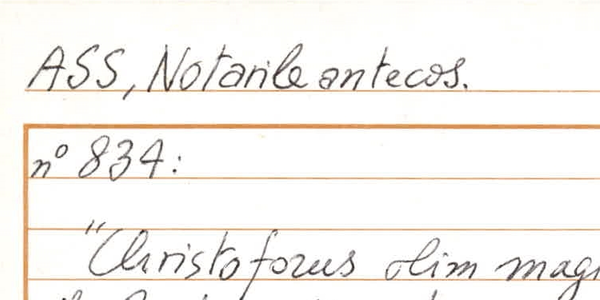 ASS, Notarile antecos.
n° 834:
"Christoforus olim mag